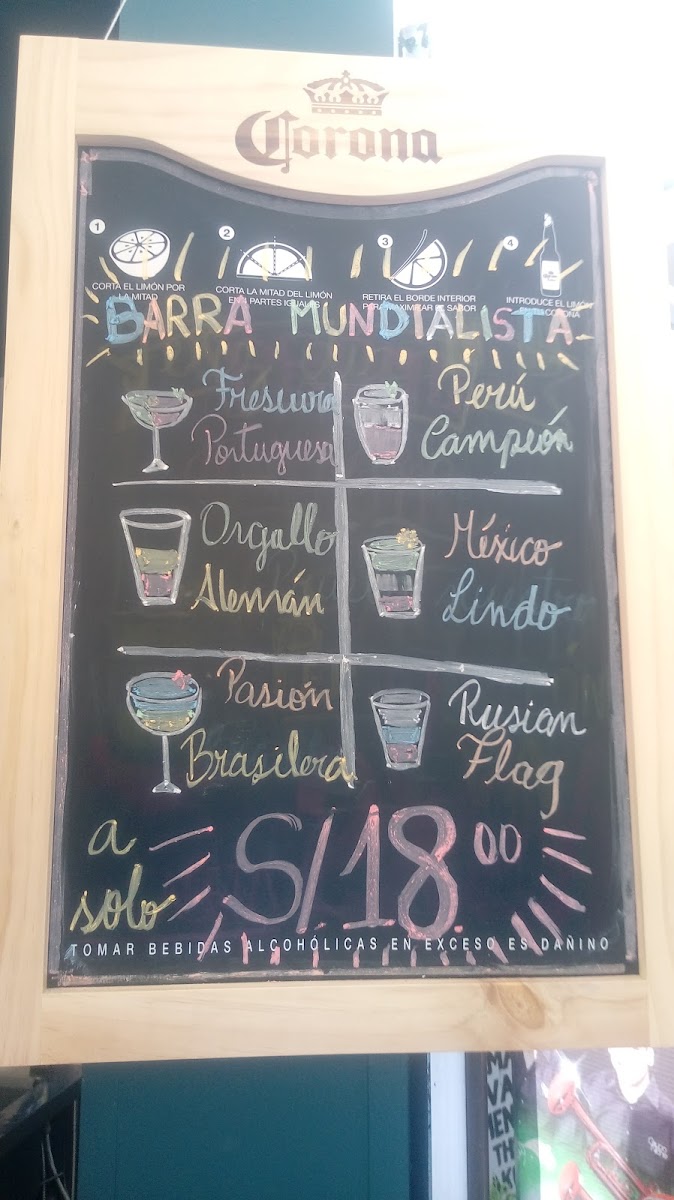 Corona
1
2
3
4
CORTA EL LIMÓN POR
LA MITAD
CORTA LA MITAD DEL LIMÓN
EN 4 PARTES IGUALES
RETIRA EL BORDE INTERIOR
PARA MAXIMIZAR EL SABOR
INTRODUCE EL LIMÓN
EN TU CORONA
BARRA MUNDIALISTA
Frescura
Portuguesa
Perú
Campeón
Orgallo
Alemán
México
Lindo
Pasión
Brasilera
Rusian
Flag
a
solo
S/.18.00
TOMAR BEBIDAS ALCOHÓLICAS EN EXCESO ES DAÑINO